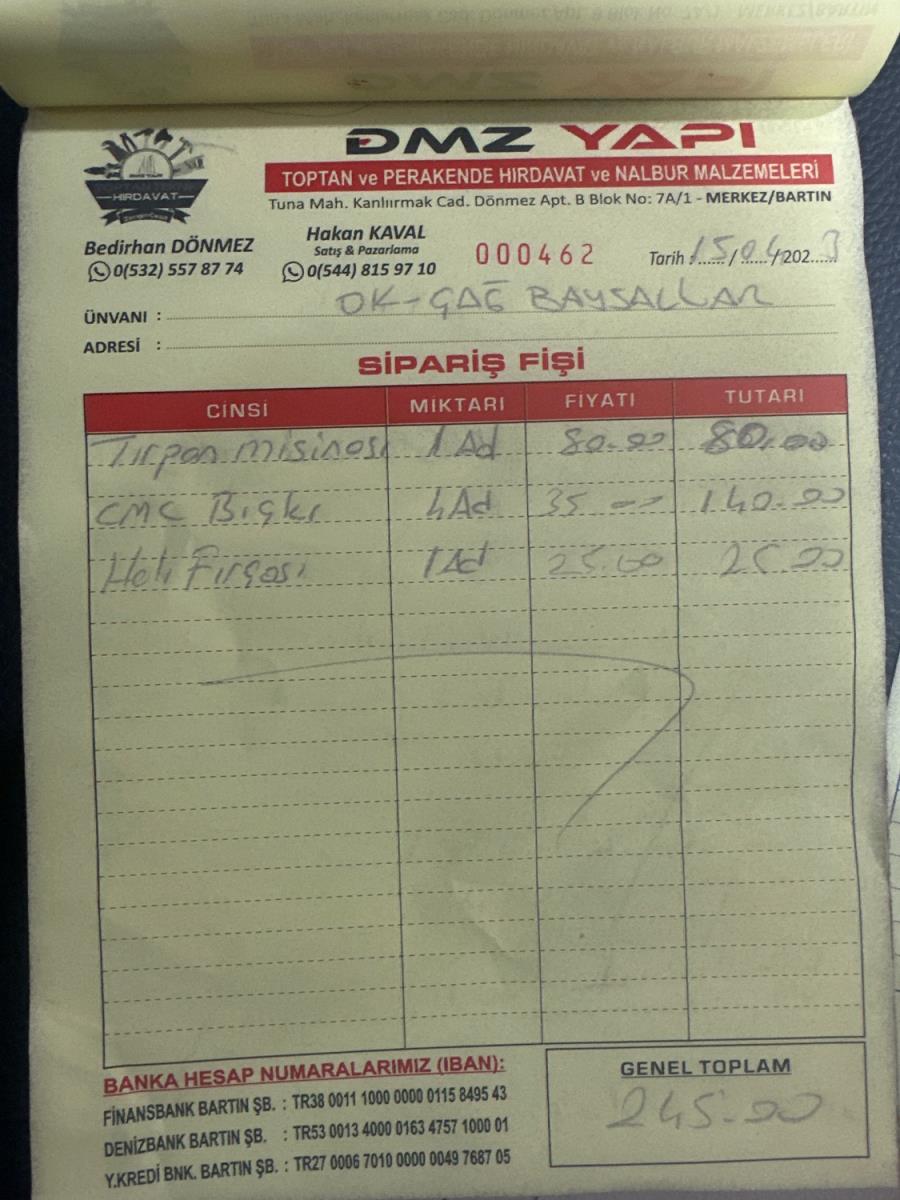 DMZ YAPI
HIRDAVAT
TOPTAN ve PERAKENDE HIRDAVAT ve NALBUR MALZEMELERİ
Tuna Mah. Kanlıırmak Cad. Dönmez Apt. B Blok No: 7A/1 - MERKEZ/BARTIN
Bedirhan DÖNMEZ
0(532) 557 87 74
Hakan KAVAL
Satış & Pazarlama
0(544) 815 97 10
000462
Tarih : 15/04/2023
ÜNVANI : OK-ÇAĞ BAYSALLAR
ADRESİ :
SİPARİŞ FİŞİ
CİNSİ MİKTARI FİYATI TUTARI
Tırpan misinası 1 Ad 80.00 80.00
CMC Bıçkı 4 Ad 35.00 140.00
Fırçası 1 Ad 25.00 25.00
BANKA HESAP NUMARALARIMIZ (IBAN):
FİNANSBANK BARTIN ŞB. : TR38 0011 1000 0000 0115 8495 43
DENİZBANK BARTIN ŞB. : TR53 0013 4000 0163 4757 1000 01
Y.KREDİ BNK. BARTIN ŞB. : TR27 0006 7010 0000 0049 7687 05
GENEL TOPLAM
245.00